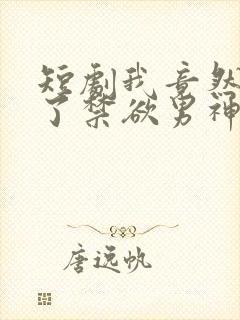 短剧我竟然
了禁欲男神
唐远帆